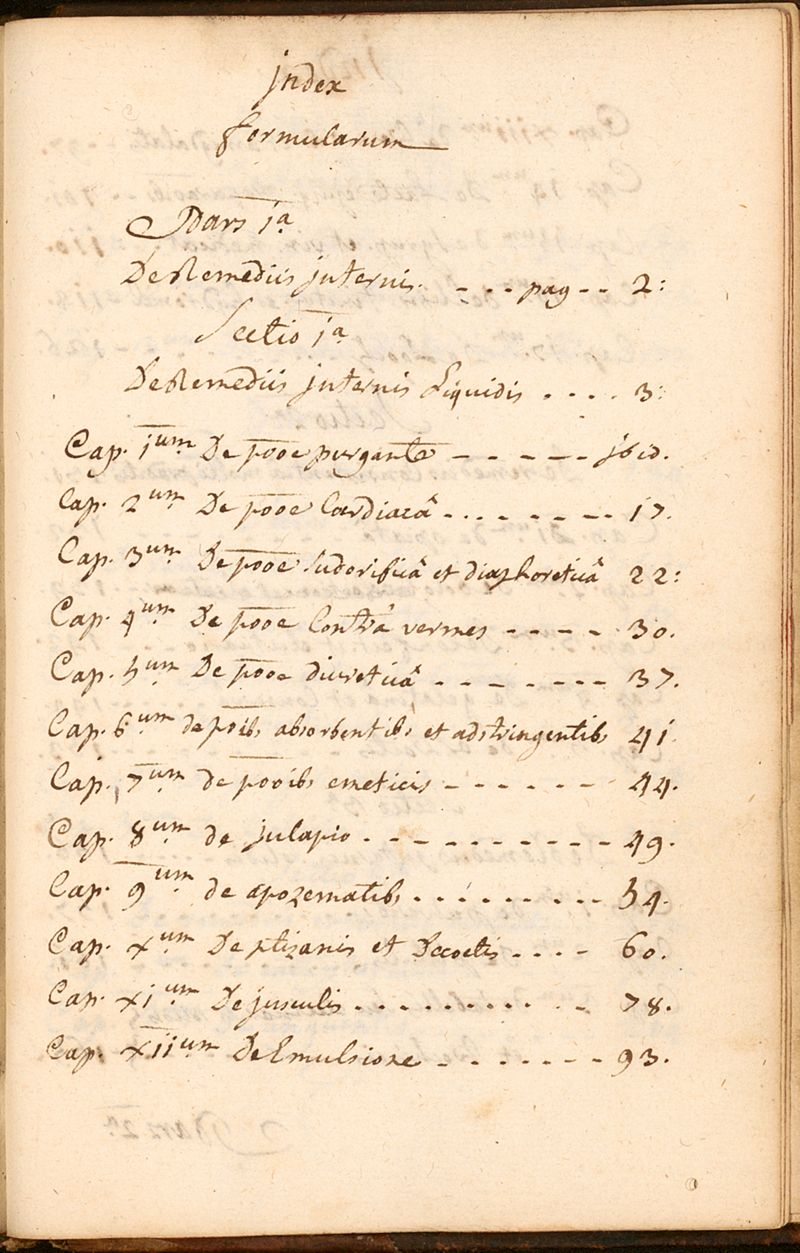 Index
formularum
Pars 1a
De Remediis internis. - - - pag - - 2:
Sectio 1a
De Remediis internis Liquidis . . . . 3:
Cap. 1um De pooe purgante - - - - - ibid.
Cap. 2um De pooe Cardiacâ - - - - - - - 17.
Cap. 3um De pooe sudorificâ et diaphoreticâ 22:
Cap. 4um De pooe Contrâ vermes - - - - 30.
Cap. 5um De pooe diureticâ - - - - - - - 37.
Cap. 6um de poibs absorbentibs et adstringentibs 41.
Cap. 7um de pooibs emeticis - - - - - - 44.
Cap. 8um de julapio - - - - - - - - - - 49.
Cap. 9um de apozematibs . . . . . . - - - 54.
Cap. xum De ptizanis et Decoctis . . . - 60.
Cap. xium De jusculis . . . . . . . . . . - - 78.
Cap. xiium De Emulsione - - - - - - - 93.